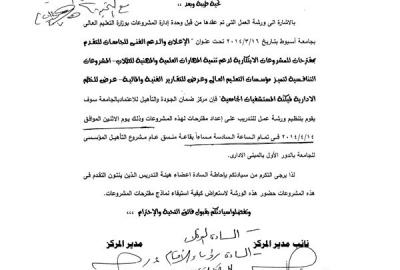 تحية طيبة وبعد ،،،
بالاشارة الى ورشة العمل التى تم عقدها من قبل وحدة إدارة المشروعات بوزارة التعليم العالى
بجامعة أسيوط بتاريخ ٢٠١٤/٣/١٦ تحت عنوان "الإعلان والدعم الفنى للجامعات للتقدم
بمقترحات للمشروعات الابتكارية لدعم تنمية المهارات العلمية والمهنية للطلاب - المشروعات
التنافسية لتميز مؤسسات التعليم العالى وعرض للتقارير الفنية والمالية - عرض للنظم
الادارية لميكنة المستشفيات الجامعية" فإن مركز ضمان الجودة والتأهيل للاعتماد بالجامعة سوف
يقوم بتنظيم ورشة عمل للتدريب على إعداد مقترحات لهذه المشروعات وذلك يوم الاثنين الموافق
٢٠١٤/٤/١٤ فى تمام الساعة السادسة مساءاً بقاعة منسق عام مشروع التأهيل المؤسسى
للجامعة بالدور الأول بالمبنى الادارى.
لذا يرجى التكرم من سيادتكم بإحاطة السادة اعضاء هيئة التدريس الذين ينتون التقدم فى
هذه المشروعات حضور هذه الورشة لاستعراض كيفية استيفاء نماذج مقترحات المشروعات.
وتفضلوا سيادتكم بقبول فائق التحية والإحترام ،،،
نائب مدير المركز
مدير المركز
السادة
السادة رؤساء الأقسام